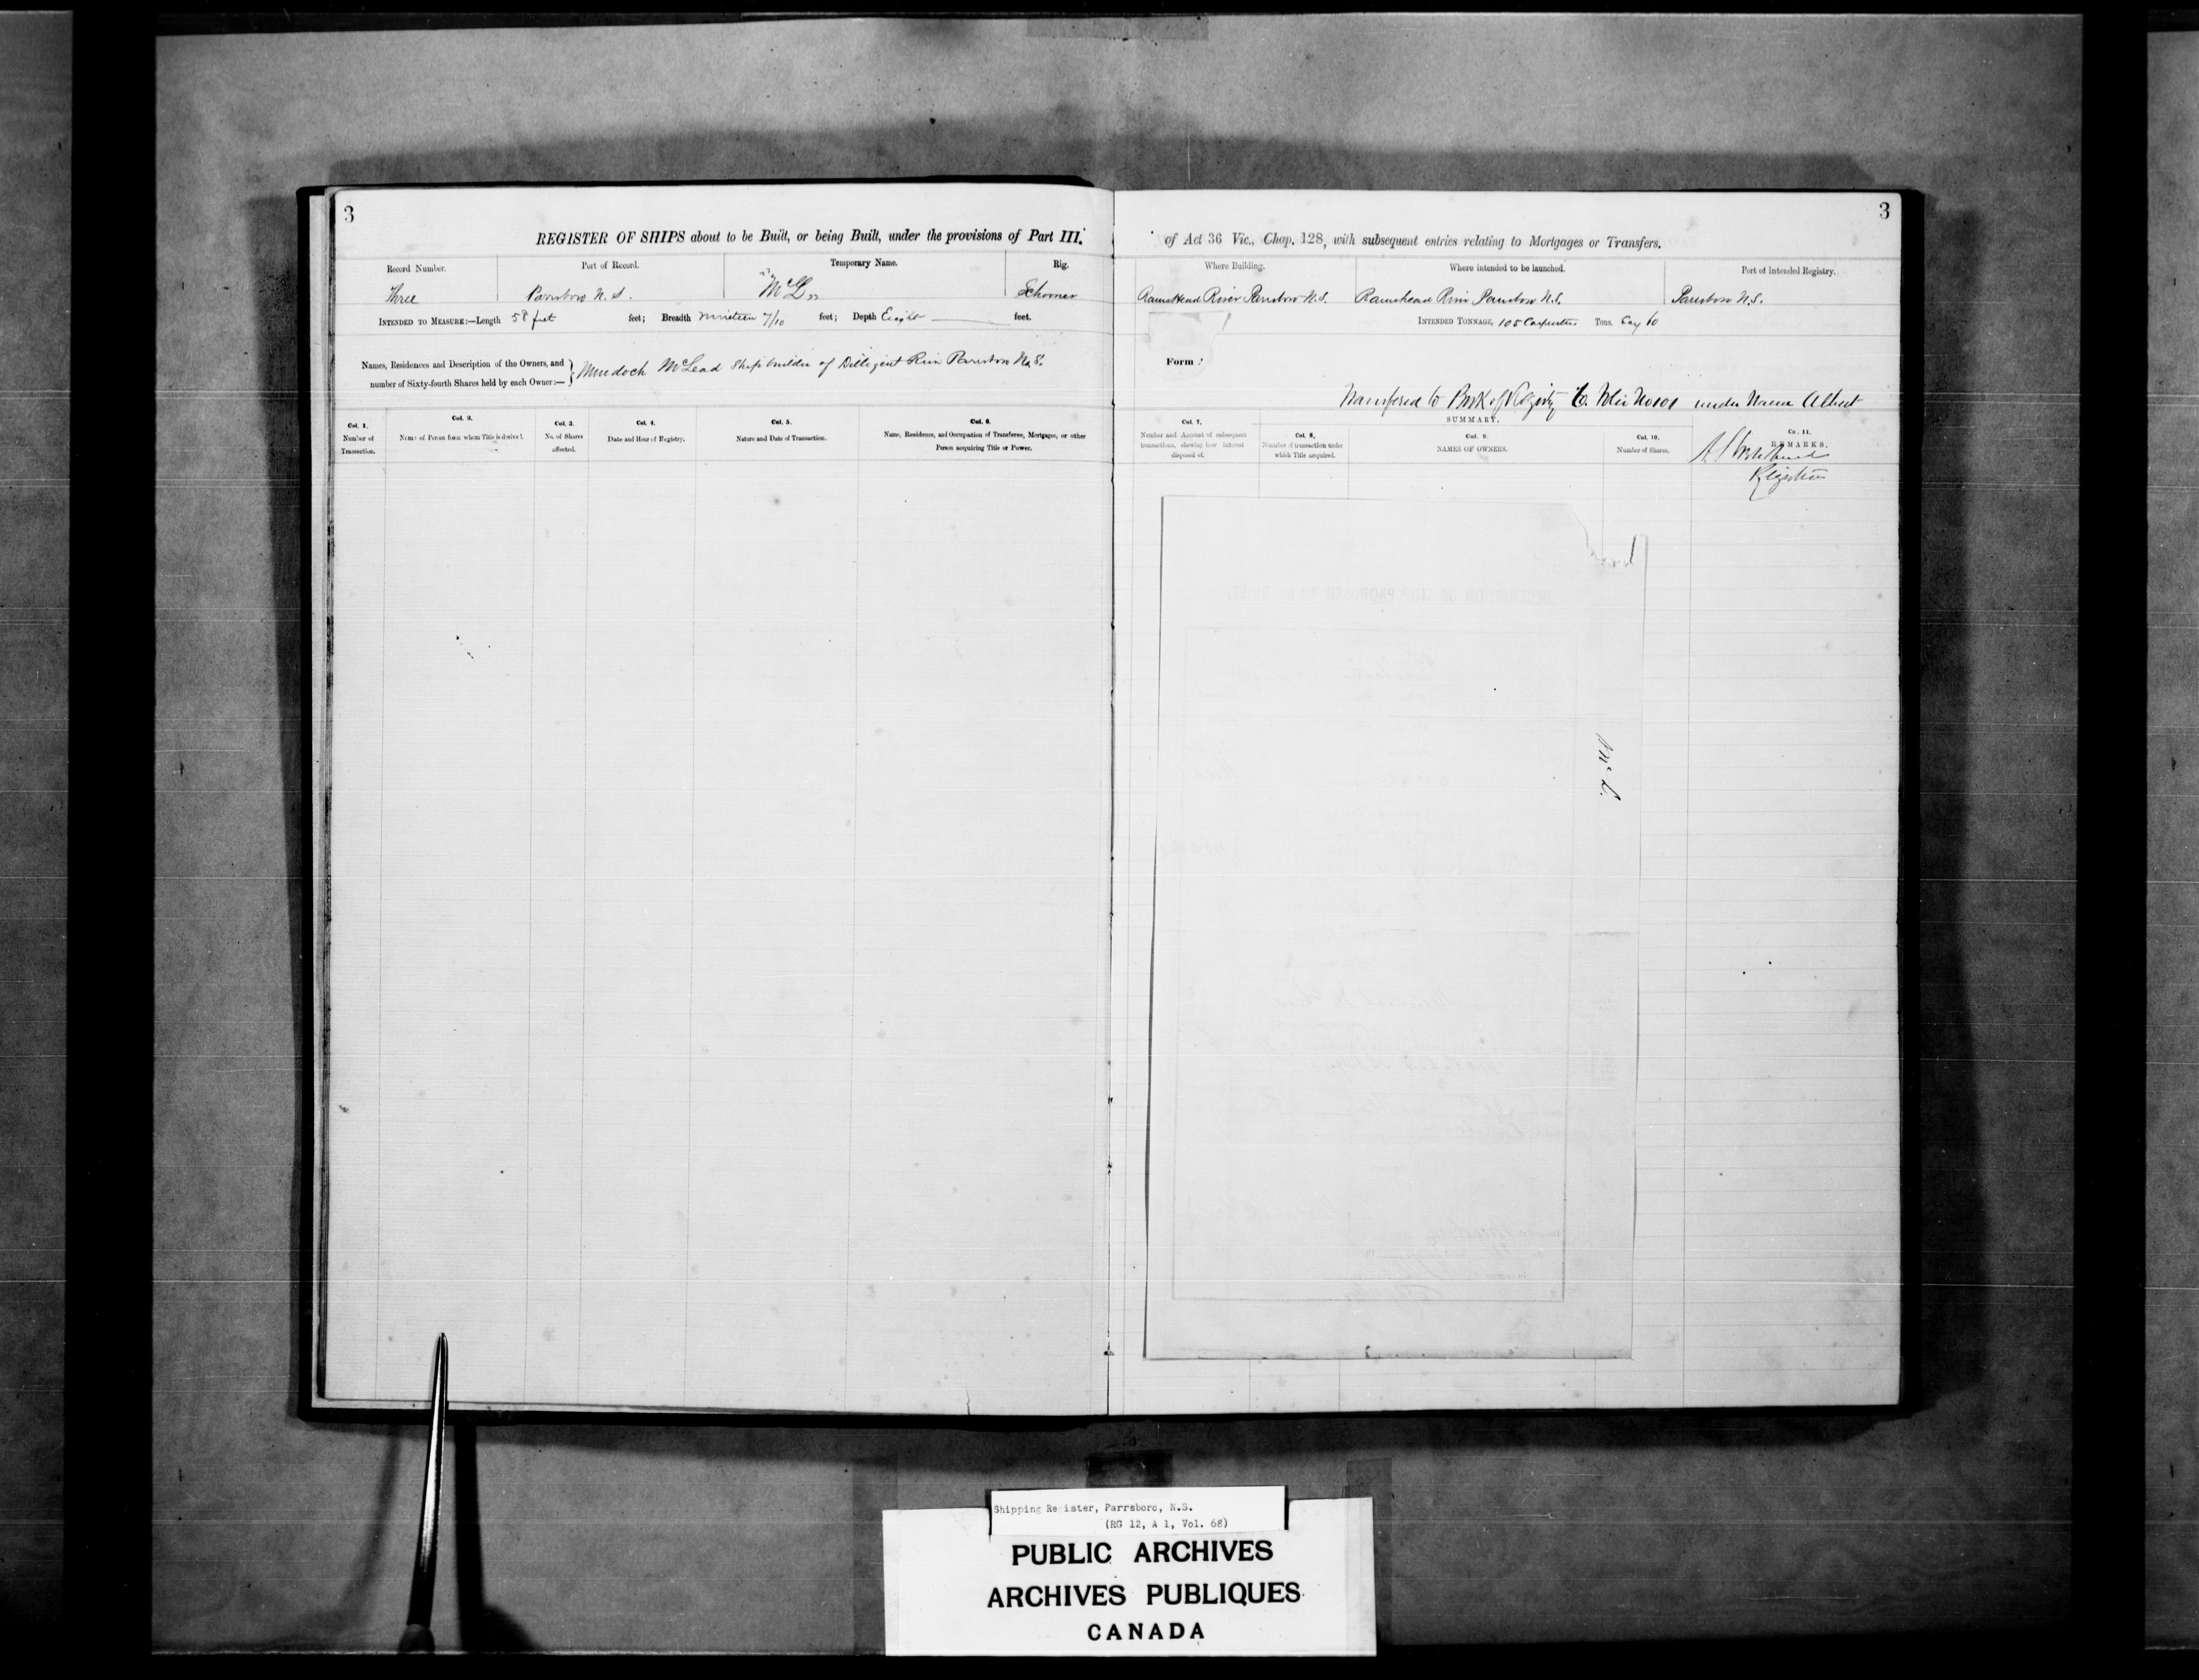 3
REGISTER OF SHIPS about to be Built, or being Built, under the provisions of Part III.
Record Number.
Port of Record.
Temporary Name.
Rig.
Three
Parrsboro N.S.
"McL"
Schooner
INTENDED TO MEASURE:—Length 58 feet feet; Breadth Nineteen 7/10 feet; Depth Eight feet.
Names, Residences and Description of the Owners, and
number of Sixty-fourth Shares held by each Owner:—
Murdoch McLead Shipbuilder of Dilligent River Parrsboro N.S.
Col. 1.
Number of
Transaction.
Col. 2.
Name of Person from whom Title is derived.
Col. 3.
No. of Shares
affected.
Col. 4.
Date and Hour of Registry.
Col. 5.
Nature and Date of Transaction.
Col. 6.
Name, Residence, and Occupation of Transferee, Mortgagee, or other
Person acquiring Title or Power.
3
of Act 36 Vic., Chap. 128, with subsequent entries relating to Mortgages or Transfers.
Where Building.
Where intended to be launched.
Port of Intended Registry.
Ramshead River Parrsboro N.S.
Ramshead River Parrsboro N.S.
Parrsboro N.S.
INTENDED TONNAGE, 105 Carpenters Tons. Say 60
Form
Transfered to Book of Registry under Name Albert
SUMMARY.
Col. 7.
Number and Amount of subsequent
transactions, shewing how interest
disposed of.
Col. 8.
Number of transaction under
which Title acquired.
Col. 9.
NAMES OF OWNERS.
Col. 10.
Number of Shares.
Co. 11.
REMARKS.
Registrar
McL.
Shipping Register, Parrsboro, N.S.
(RG 12, A 1, Vol. 68)
PUBLIC ARCHIVES
ARCHIVES PUBLIQUES
CANADA